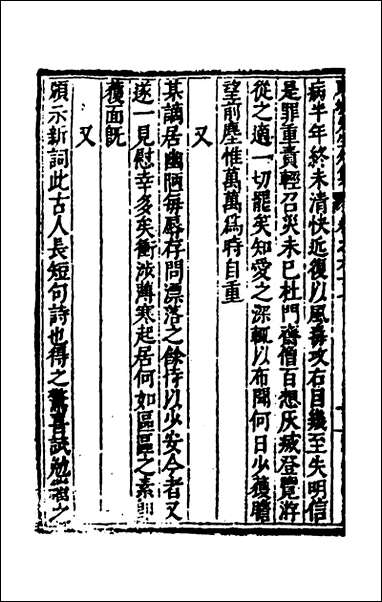 病半年終未清快近復以風毒攻右目幾至失明信
是罪重責輕召災未已杜門齋僧百想灰滅登覽游
從之適一切罷矣知愛之深輒以布聞何日少獲瞻
望前塵惟萬萬爲時自重
又
某謫居幽陋每辱存問漂落之餘恃以少安今者又
遂一見慰幸多矣衝涉薄寒起居何如區區之素即
獲面旣
又
頒示新詞此古人長短句詩也得之驚喜試勉繼之